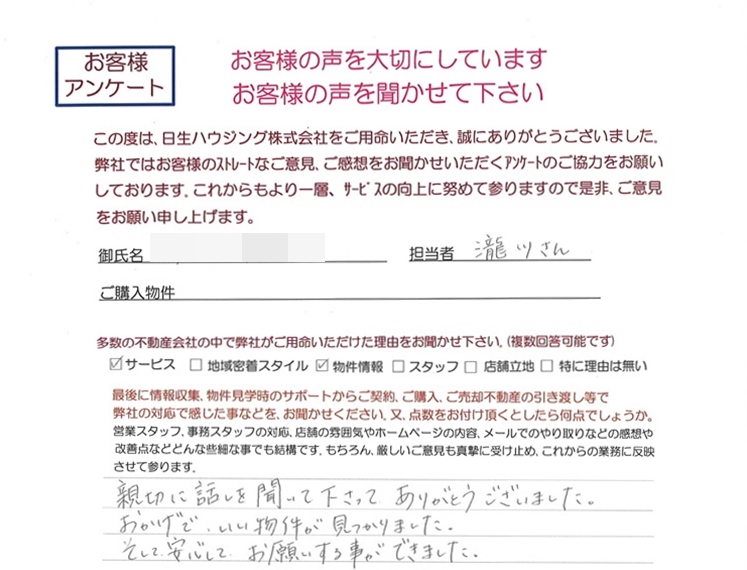 お客様
アンケート
お客様の声を大切にしています
お客様の声を聞かせて下さい
この度は、日生ハウジング株式会社をご用命いただき、誠にありがとうございました。
弊社ではお客様のストレートなご意見、ご感想をお聞かせいただくアンケートのご協力をお願い
しております。これからもより一層、サービスの向上に努めて参りますので是非、ご意見
をお願い申し上げます。
御氏名 担当者 瀧川さん
ご購入物件
多数の不動産会社の中で弊社がご用命いただけた理由をお聞かせ下さい。(複数回答可能です)
☑サービス □地域密着スタイル ☑物件情報 □スタッフ □店舗立地 □特に理由は無い
最後に情報収集、物件見学時のサポートからご契約、ご購入、ご売却不動産の引き渡し等で
弊社の対応で感じた事などを、お聞かせください。又、点数をお付け頂くとしたら何点でしょうか。
営業スタッフ、事務スタッフの対応、店舗の雰囲気やホームページの内容、メールでのやり取りなどの感想や
改善点などどんな些細な事でも結構です。もちろん、厳しいご意見も真摯に受け止め、これからの業務に反映
させて参ります。
親切に話しを聞いて下さって ありがとうございました。
おかげで、いい物件が見つかりました。
そして、安心して、お願いする事ができました。